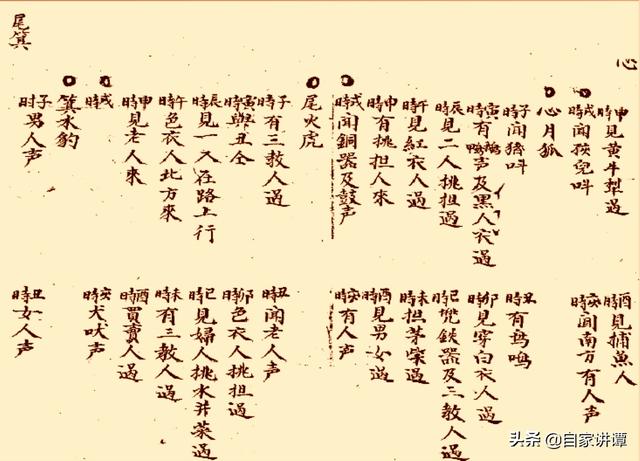 心
申時見黄牛犁過
酉時見捕魚人
戌時聞孩兒叫
亥時聞南方有人声
心月狐
子時聞猪叫
丑時有鸟鳴
寅時有鵝鴨声及黒人衣過
卯時見穿白衣人過
辰時見二人挑担過
巳時鉄器及三教人過
午時見紅衣人過
未時担茅柴過
申時有挑担人來
酉時見男女過
戌時聞銅器及鼓声
亥時有人声
尾火虎
子時有三教人過
丑時聞老人声
寅時與丑仝
卯時色衣人挑担過
辰時見一人在路上行
巳時見婦人挑水并菜過
午時色衣人北方來
未時有三教人過
申時見老人來
酉時買賣人過
戌時
亥時犬吠声
箕水豹
子时男人声
丑時女人声
尾箕
头条 @自家讲谭